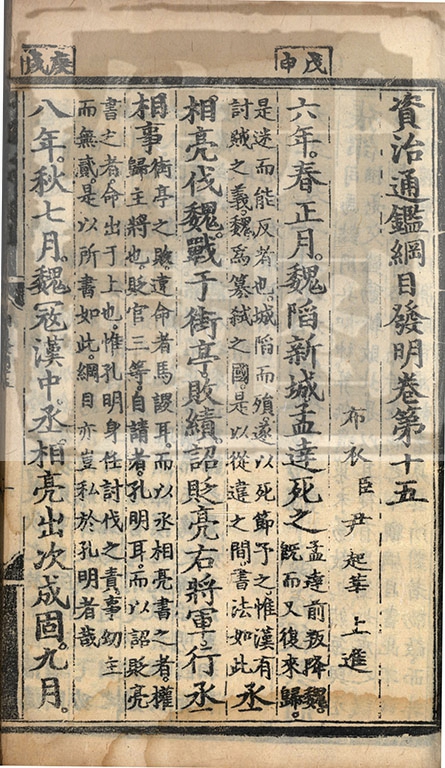 戊申
資治通鑑綱目發明卷第十五
布衣臣尹起莘上進
六年。春正月。魏陷新城孟達死之
孟達前叛降魏。
既而又復來歸。
是迷而能反者也。城陷而殞。遂以死節予之。惟漢有
討賊之義。魏爲篡弑之國是以從違之間。書法如此
丞
相亮伐魏。戰于街亭敗績。詔貶亮右將軍。行丞
相事
街亭之敗。違命者馬謖耳。而以丞相亮書之者。權
歸主將也。貶官三等。自請者。孔明耳。而以詔貶亮
書之者。命出于上也。惟孔明身任討伐之責。事幼主
而無貳。是以所書如此。綱目亦豈私於孔明者哉
庚戌
八年。秋七月。魏寇漢中。丞相亮出次成固。九月。